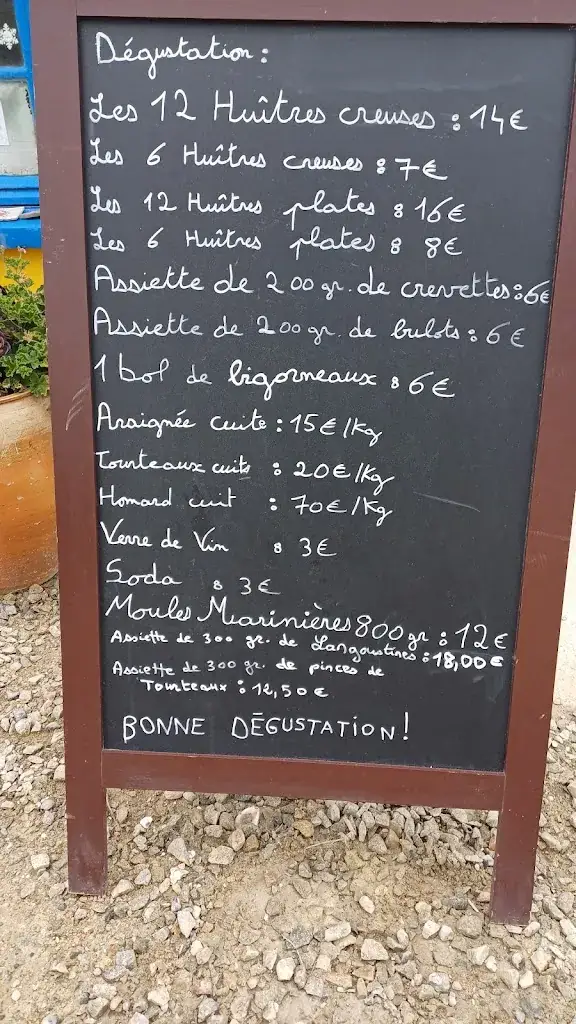 Dégustation :
Les 12 Huîtres creuses : 14€
Les 6 Huîtres creuses : 7€
Les 12 Huîtres plates : 16€
Les 6 Huîtres plates : 8€
Assiette de 200 gr. de crevettes : 6€
Assiette de 200 gr. de bulots : 6€
1 bol de bigorneaux : 6€
Araignée cuite : 15€/Kg
Tourteaux cuits : 20€/Kg
Homard cuit : 70€/Kg
Verre de Vin : 3€
Soda : 3€
Moules Marinières 800 gr : 12€
Assiette de 300 gr. de Langoustines : 18,00€
Assiette de 300 gr. de pinces de
Tourteaux : 12,50€
BONNE DÉGUSTATION !